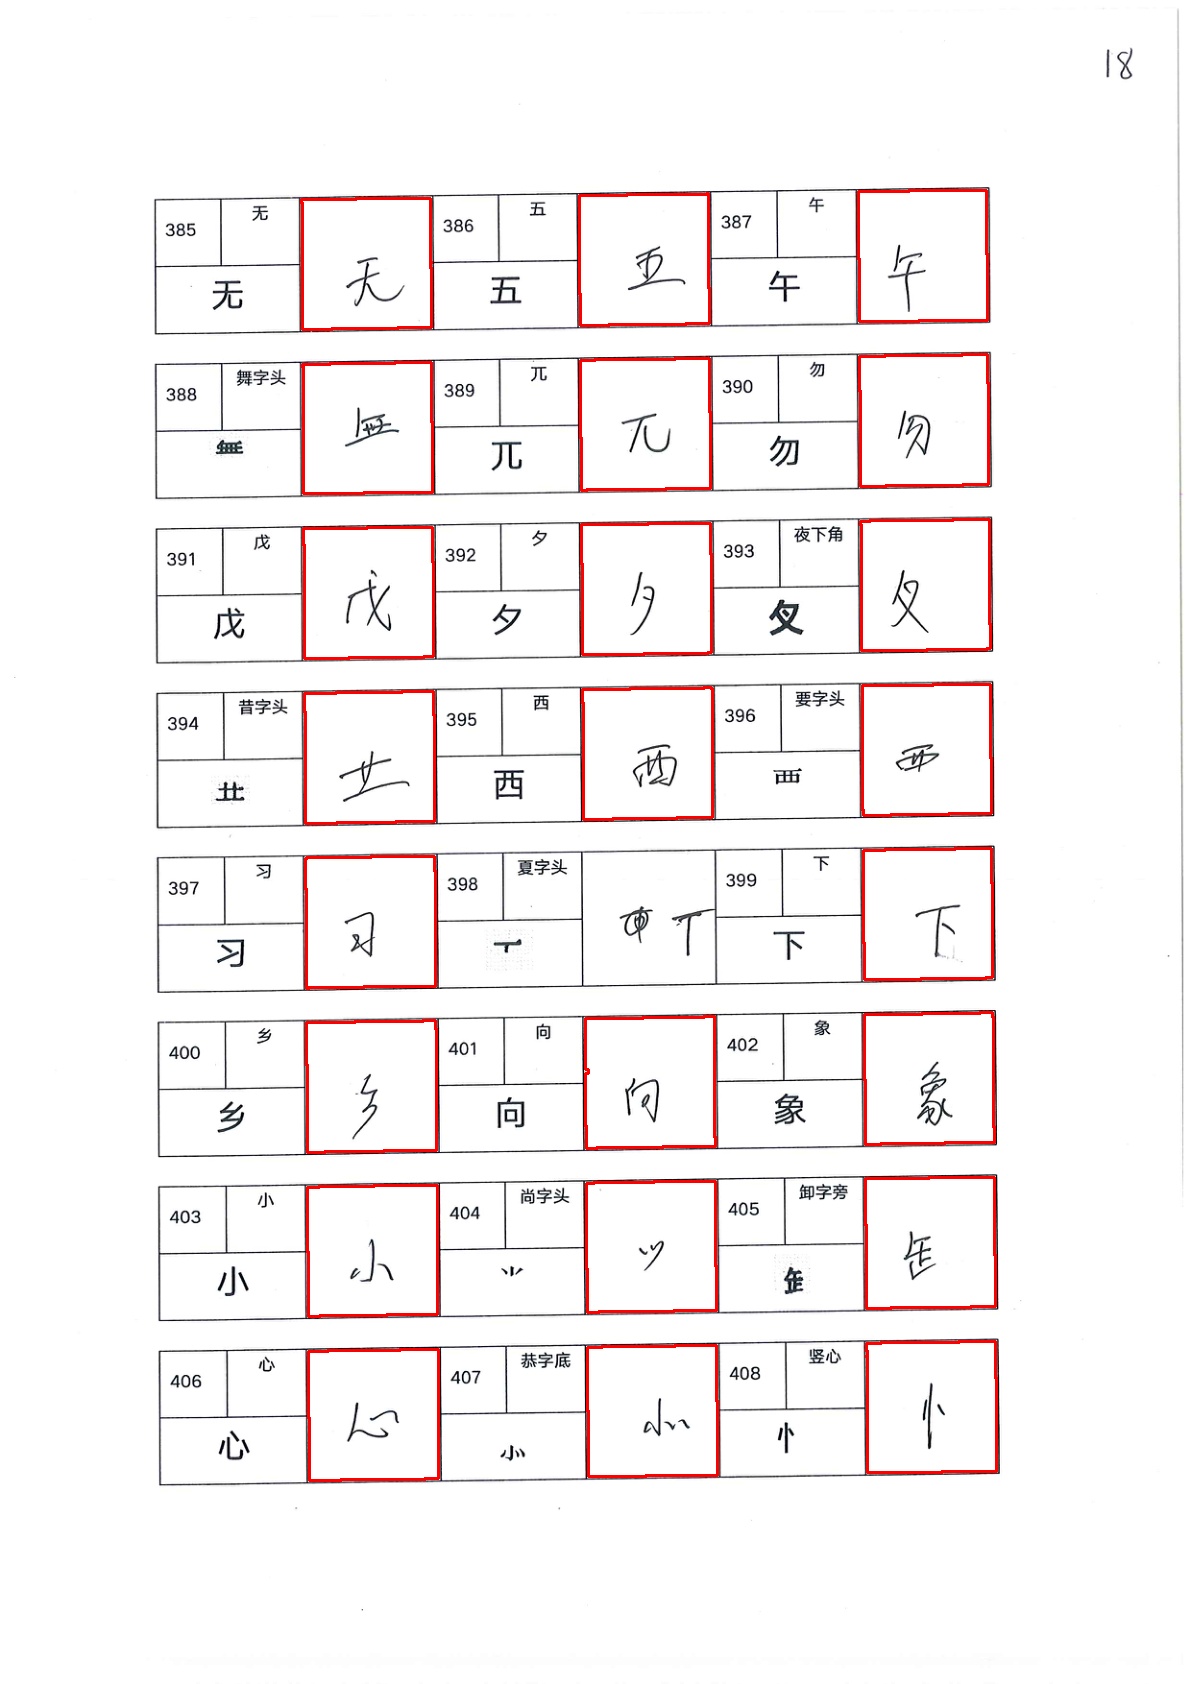 18
385 无 无 无 386 五 五 五 387 午 午 午
388 舞字头 389 兀 兀 兀 390 勿 勿 勿
391 戊 戊 戊 392 夕 夕 夕 393 夜下角
394 昔字头 龷 龷 395 西 西 西 396 要字头 覀 覀
397 习 习 习 398 夏字头 399 下 下 下
400 乡 乡 乡 401 向 向 向 402 象 象 象
403 小 小 小 404 尚字头 ⺌ ⺌ 405 卸字旁
406 心 心 心 407 恭字底 㣺 㣺 408 竖心 忄 忄